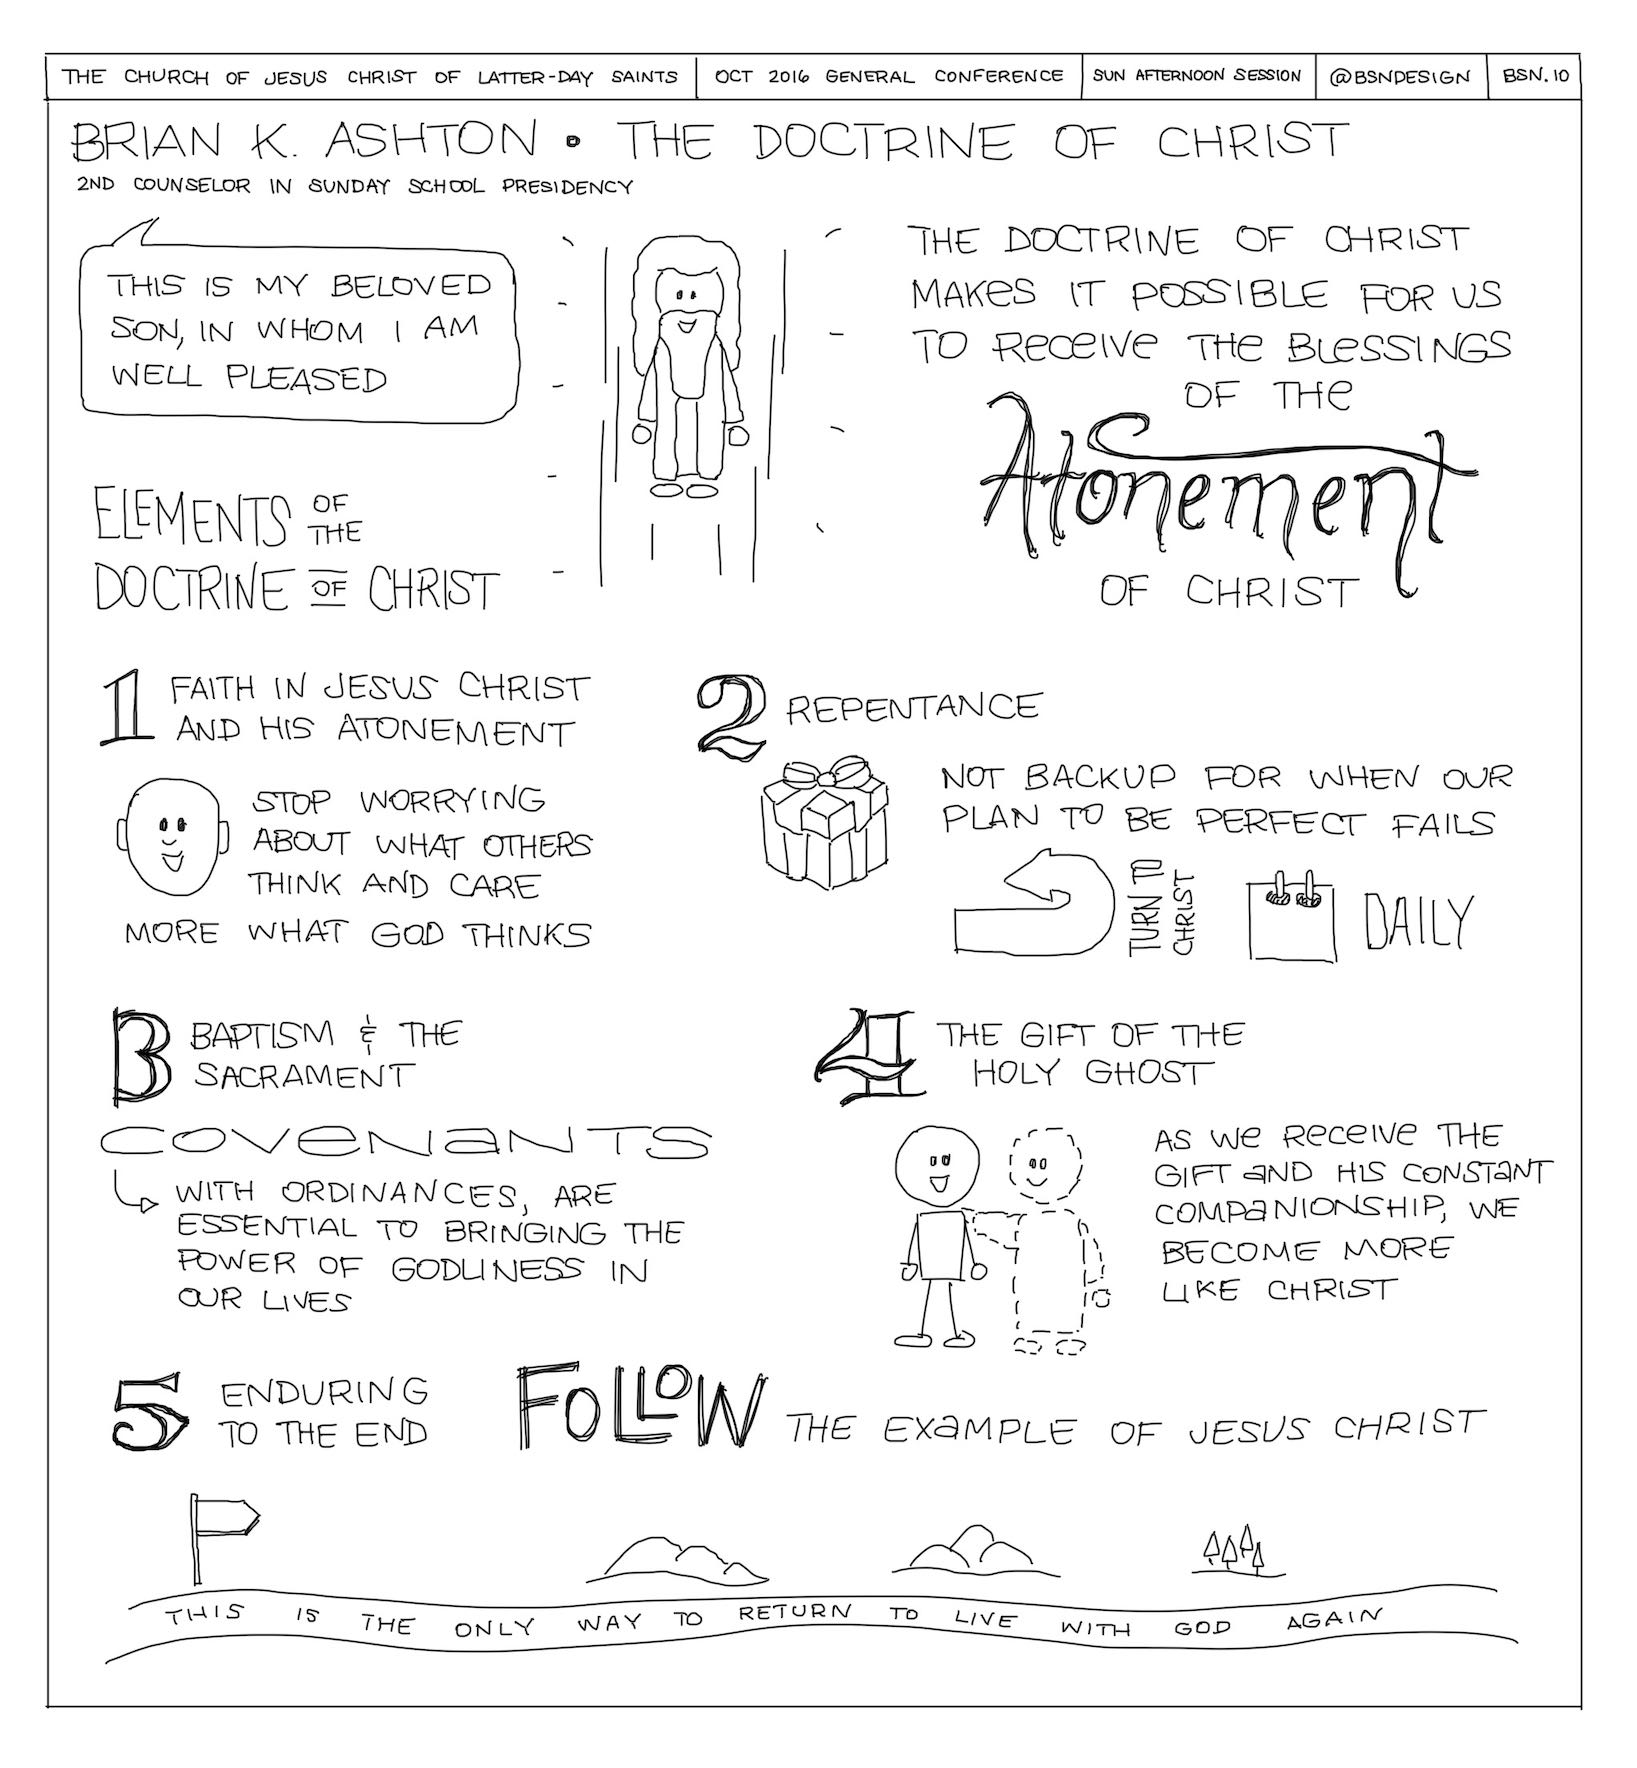 THE CHURCH OF JESUS CHRIST OF LATTER-DAY SAINTS
OCT 2016 GENERAL CONFERENCE
SUN AFTERNOON SESSION
@BSNDESIGN
BSN.10
BRIAN K. ASHTON • THE DOCTRINE OF CHRIST
2ND COUNSELOR IN SUNDAY SCHOOL PRESIDENCY
THIS IS MY BELOVED
SON, IN WHOM I AM
WELL PLEASED
THE DOCTRINE OF CHRIST
MAKES IT POSSIBLE FOR US
TO RECEIVE THE BLESSINGS
OF THE
Atonement
OF CHRIST
ELEMENTS OF THE
DOCTRINE OF CHRIST
1 FAITH IN JESUS CHRIST
AND HIS ATONEMENT
STOP WORRYING
ABOUT WHAT OTHERS
THINK AND CARE
MORE WHAT GOD THINKS
2 REPENTANCE
NOT BACKUP FOR WHEN OUR
PLAN TO BE PERFECT FAILS
TURN TO
CHRIST
DAILY
3 BAPTISM & THE
SACRAMENT
COVENANTS
WITH ORDINANCES, ARE
ESSENTIAL TO BRINGING THE
POWER OF GODLINESS IN
OUR LIVES
4 THE GIFT OF THE
HOLY GHOST
AS WE RECEIVE THE
GIFT AND HIS CONSTANT
COMPANIONSHIP, WE
BECOME MORE
LIKE CHRIST
5 ENDURING
TO THE END
FOLLOW THE EXAMPLE OF JESUS CHRIST
THIS IS THE ONLY WAY TO RETURN TO LIVE WITH GOD AGAIN